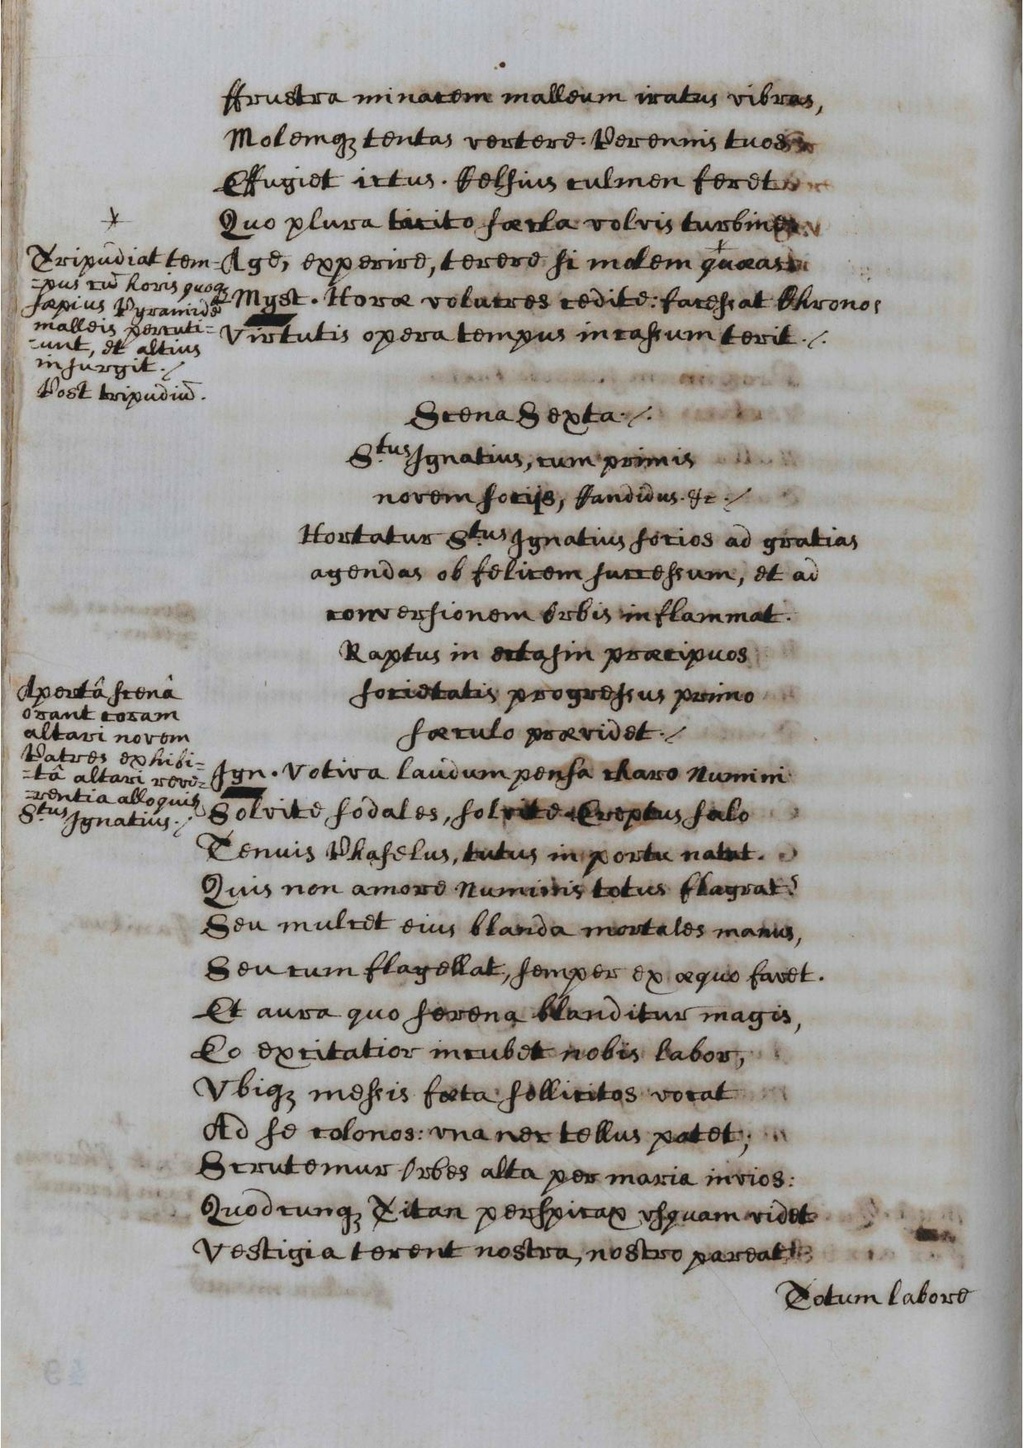 ffrustra minacem malleum iratus vibras,
Molemq3 tentas vertere. Perennis tuos
Effugiet ictus. Kelsius culmen feret
Quo plura tacito sæcla volvis turbine.
Age, experire, terere si molem quæas
Myst. Horæ volucres cedite: facessat Chronos
Virtutis opera tempus incassum terit ./.
Tripudiat tem-
-pus cū horis quoq3
sæpius Pyramidē
malleis percuti-
-unt, et altius
insurgit ./
Post tripudiū.
Scena Sexta ./.
S.tus Ignatius, cum primis
novem socijs, Kandidus. &c ./
Hortatur S.tus Ignatius socios ad gratias
agendas ob felicem successum, et ad
conversionem Orbis inflammat.
Raptus in ectasin præcipuos
societatis progressus primo
sæculo prævidet ./
Apertâ scenâ
orant coram
altari novem
Patres exhibi-
-tâ altari reve-
-rentia alloquis
S.tus Ignatius ./
Ign. Votiva laudum pensa charo Numini
Solvite sodales, solvite. Ereptus salo
Tenuis Phaselus, tutus in portu natat.
Quis non amore Numinis totus flagrat?
Seu mulcet eius blanda mortales manus,
Seu cum flagellat, semper ex æquo favet.
Et aura quo serena blanditur magis,
Eo excitatior incubet nobis labor,
Vbiq3 messis fæta sollicitos vocat
Ad se colonos: vna nec tellus patet;
Scrutemur Orbes alta per maria invios:
Quodcunq3 Titan perspicax vsquam videt
Vestigia terent nostra, nostro pareat
Totum labore